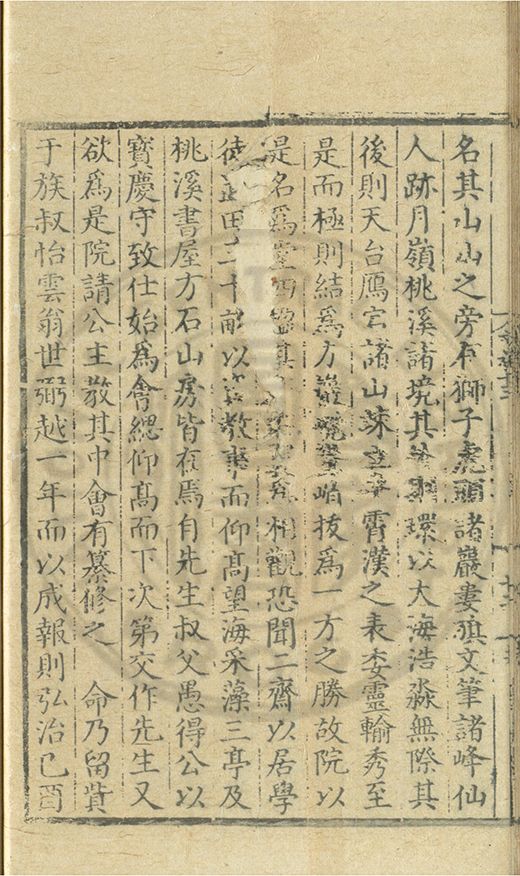 名其山山之旁有獅子虎頭諸巖婁旗文筆諸峰仙
人跡月嶺桃溪諸境其外則環以大海浩淼無際其
後則天台鴈宕諸山竦立霄漢之表委靈輸秀至
是而極則結爲方巖巉峭拔爲一方之勝故院以
是名爲堂四楹其相觀恐聞二齋以居學
徒置田二十畝以資教事而仰高望海采藻三亭及
桃溪書屋方石山房皆在焉自先生叔父愚得公以
寶慶守致仕始爲會緦仰高而下次第交作先生又
欲爲是院請公主教其中會有纂修之 命乃留貲
于族叔怡雲翁世弼越一年而以成報則弘治己酉